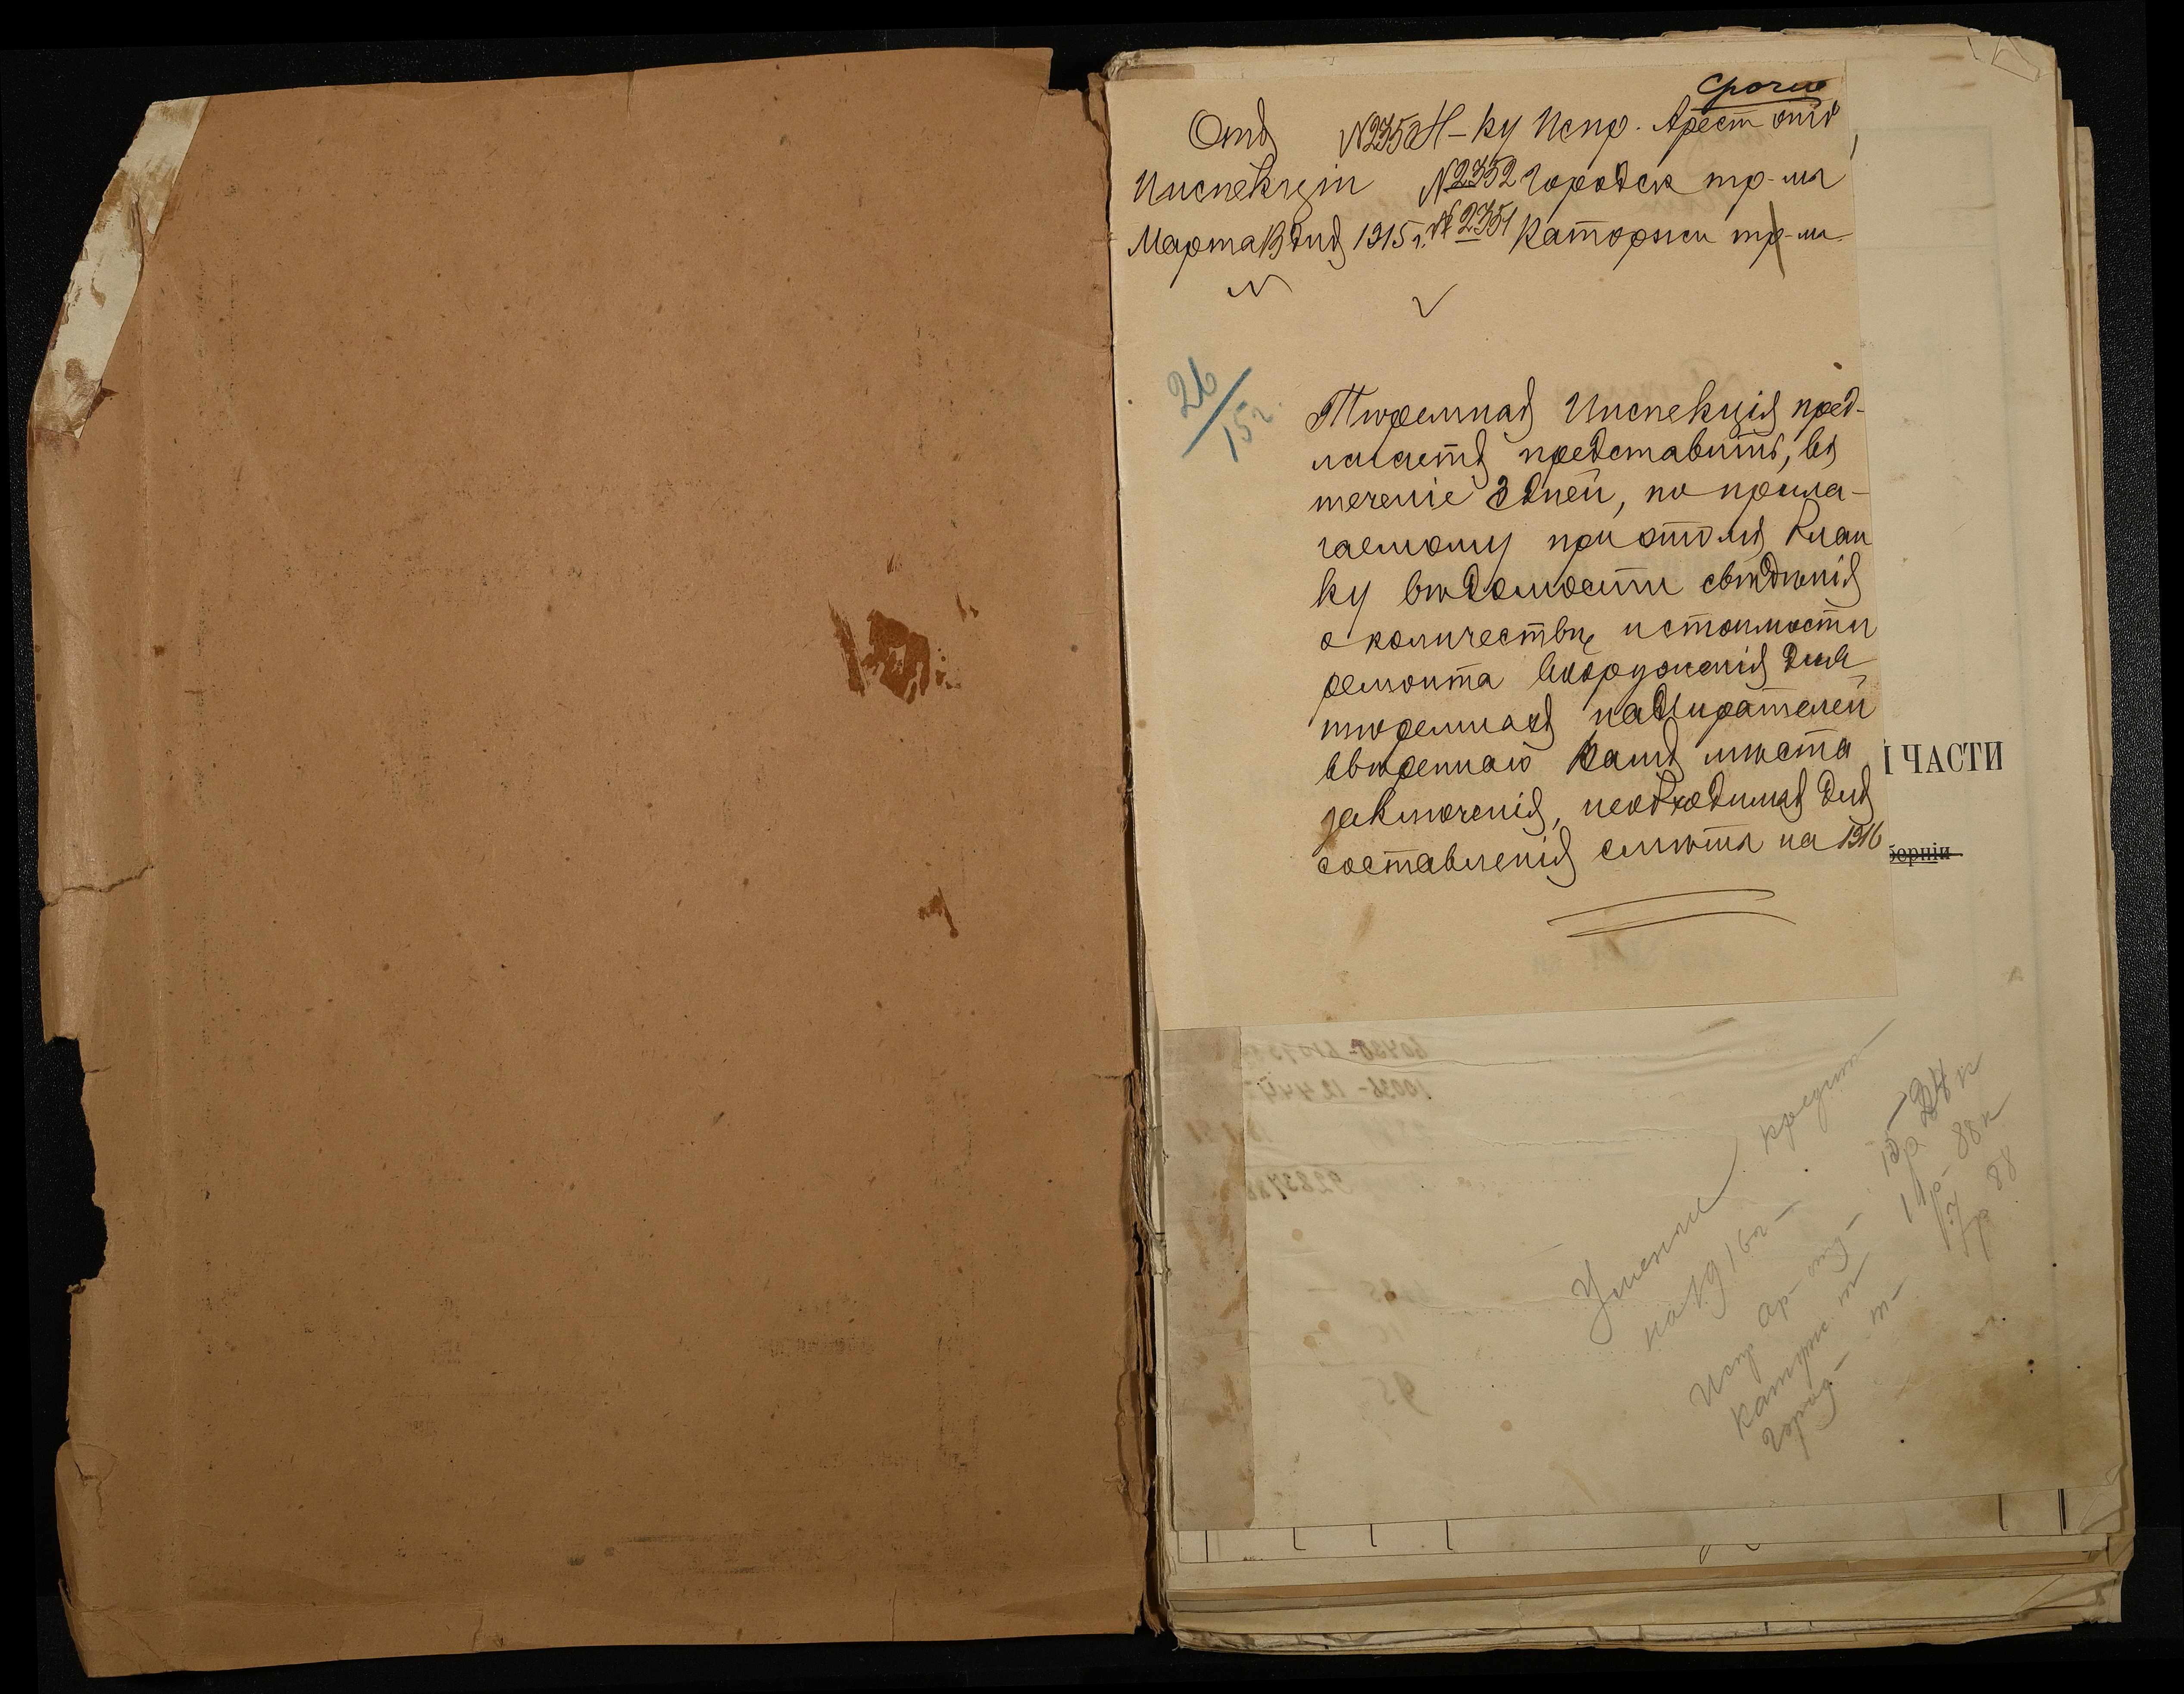 Срочно
Отд № 2350 Н-ку Испр. Арест отд
Инспекціи № 2352 Городск тр-мы
Марта 13 дня 1915 г. № 2351 Каторжн тр-мы
26/15 г.
Тюремная Инспекція пред-
лагаетъ представить, въ
теченіе 3 дней, по прила-
гаемому при этомъ блан
ку вѣдомости свѣдѣнія
о количествѣ и стоимости
ремонта вооруженія для
тюремныхъ надзирателей
ввѣреннаго Вамъ мѣста
заключенія, необходимыя для
составленія смѣты на 1916
І ЧАСТИ
берніи
кредит
на 1916 г –
Испр ар – отд – 15 р 24 к
Каторж т 11 р – 88 к
Город – т – 17 р 88